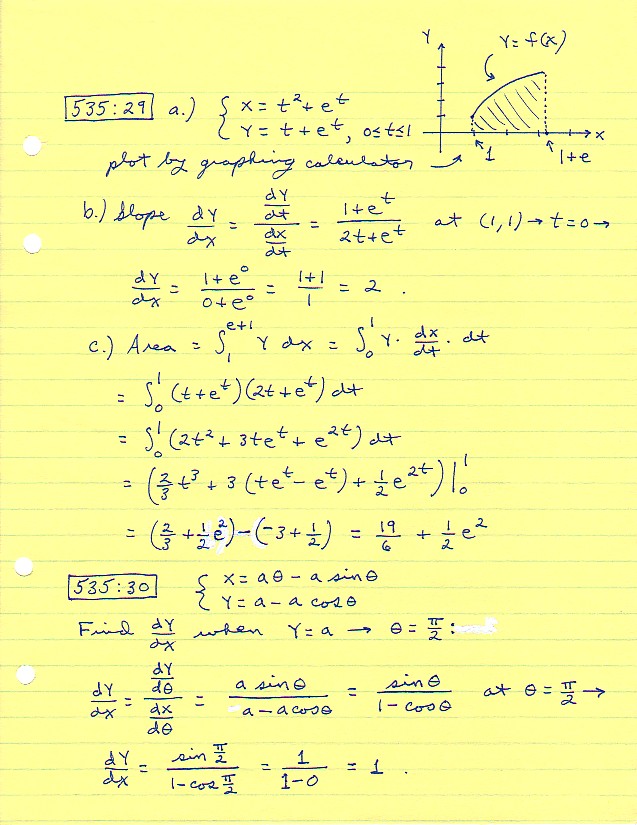 Y
Y = f(x)
535:29 a.) { x = t² + e^t
Y = t + e^t, 0≤t≤1
x
1
1+e
plot by graphing calculator →
b.) Slope dY/dx = (dY/dt)/(dx/dt) = (1+e^t)/(2t+e^t) at (1,1) → t=0 →
dY/dx = (1+e^0)/(0+e^0) = (1+1)/1 = 2 .
c.) Area = ∫_1^{e+1} Y dx = ∫_0^1 Y · dx/dt · dt
= ∫_0^1 (t+e^t)(2t+e^t) dt
= ∫_0^1 (2t² + 3te^t + e^{2t}) dt
= (2/3 t³ + 3(te^t - e^t) + 1/2 e^{2t}) |_0^1
= (2/3 + 1/2 e²) - (-3 + 1/2) = 19/6 + 1/2 e²
535:30 { x = aθ - a sinθ
Y = a - a cosθ
Find dY/dx when Y = a → θ = π/2 :
dY/dx = (dY/dθ)/(dx/dθ) = (a sinθ)/(a - a cosθ) = sinθ/(1 - cosθ) at θ = π/2 →
dY/dx = (sin π/2)/(1 - cos π/2) = 1/(1-0) = 1 .